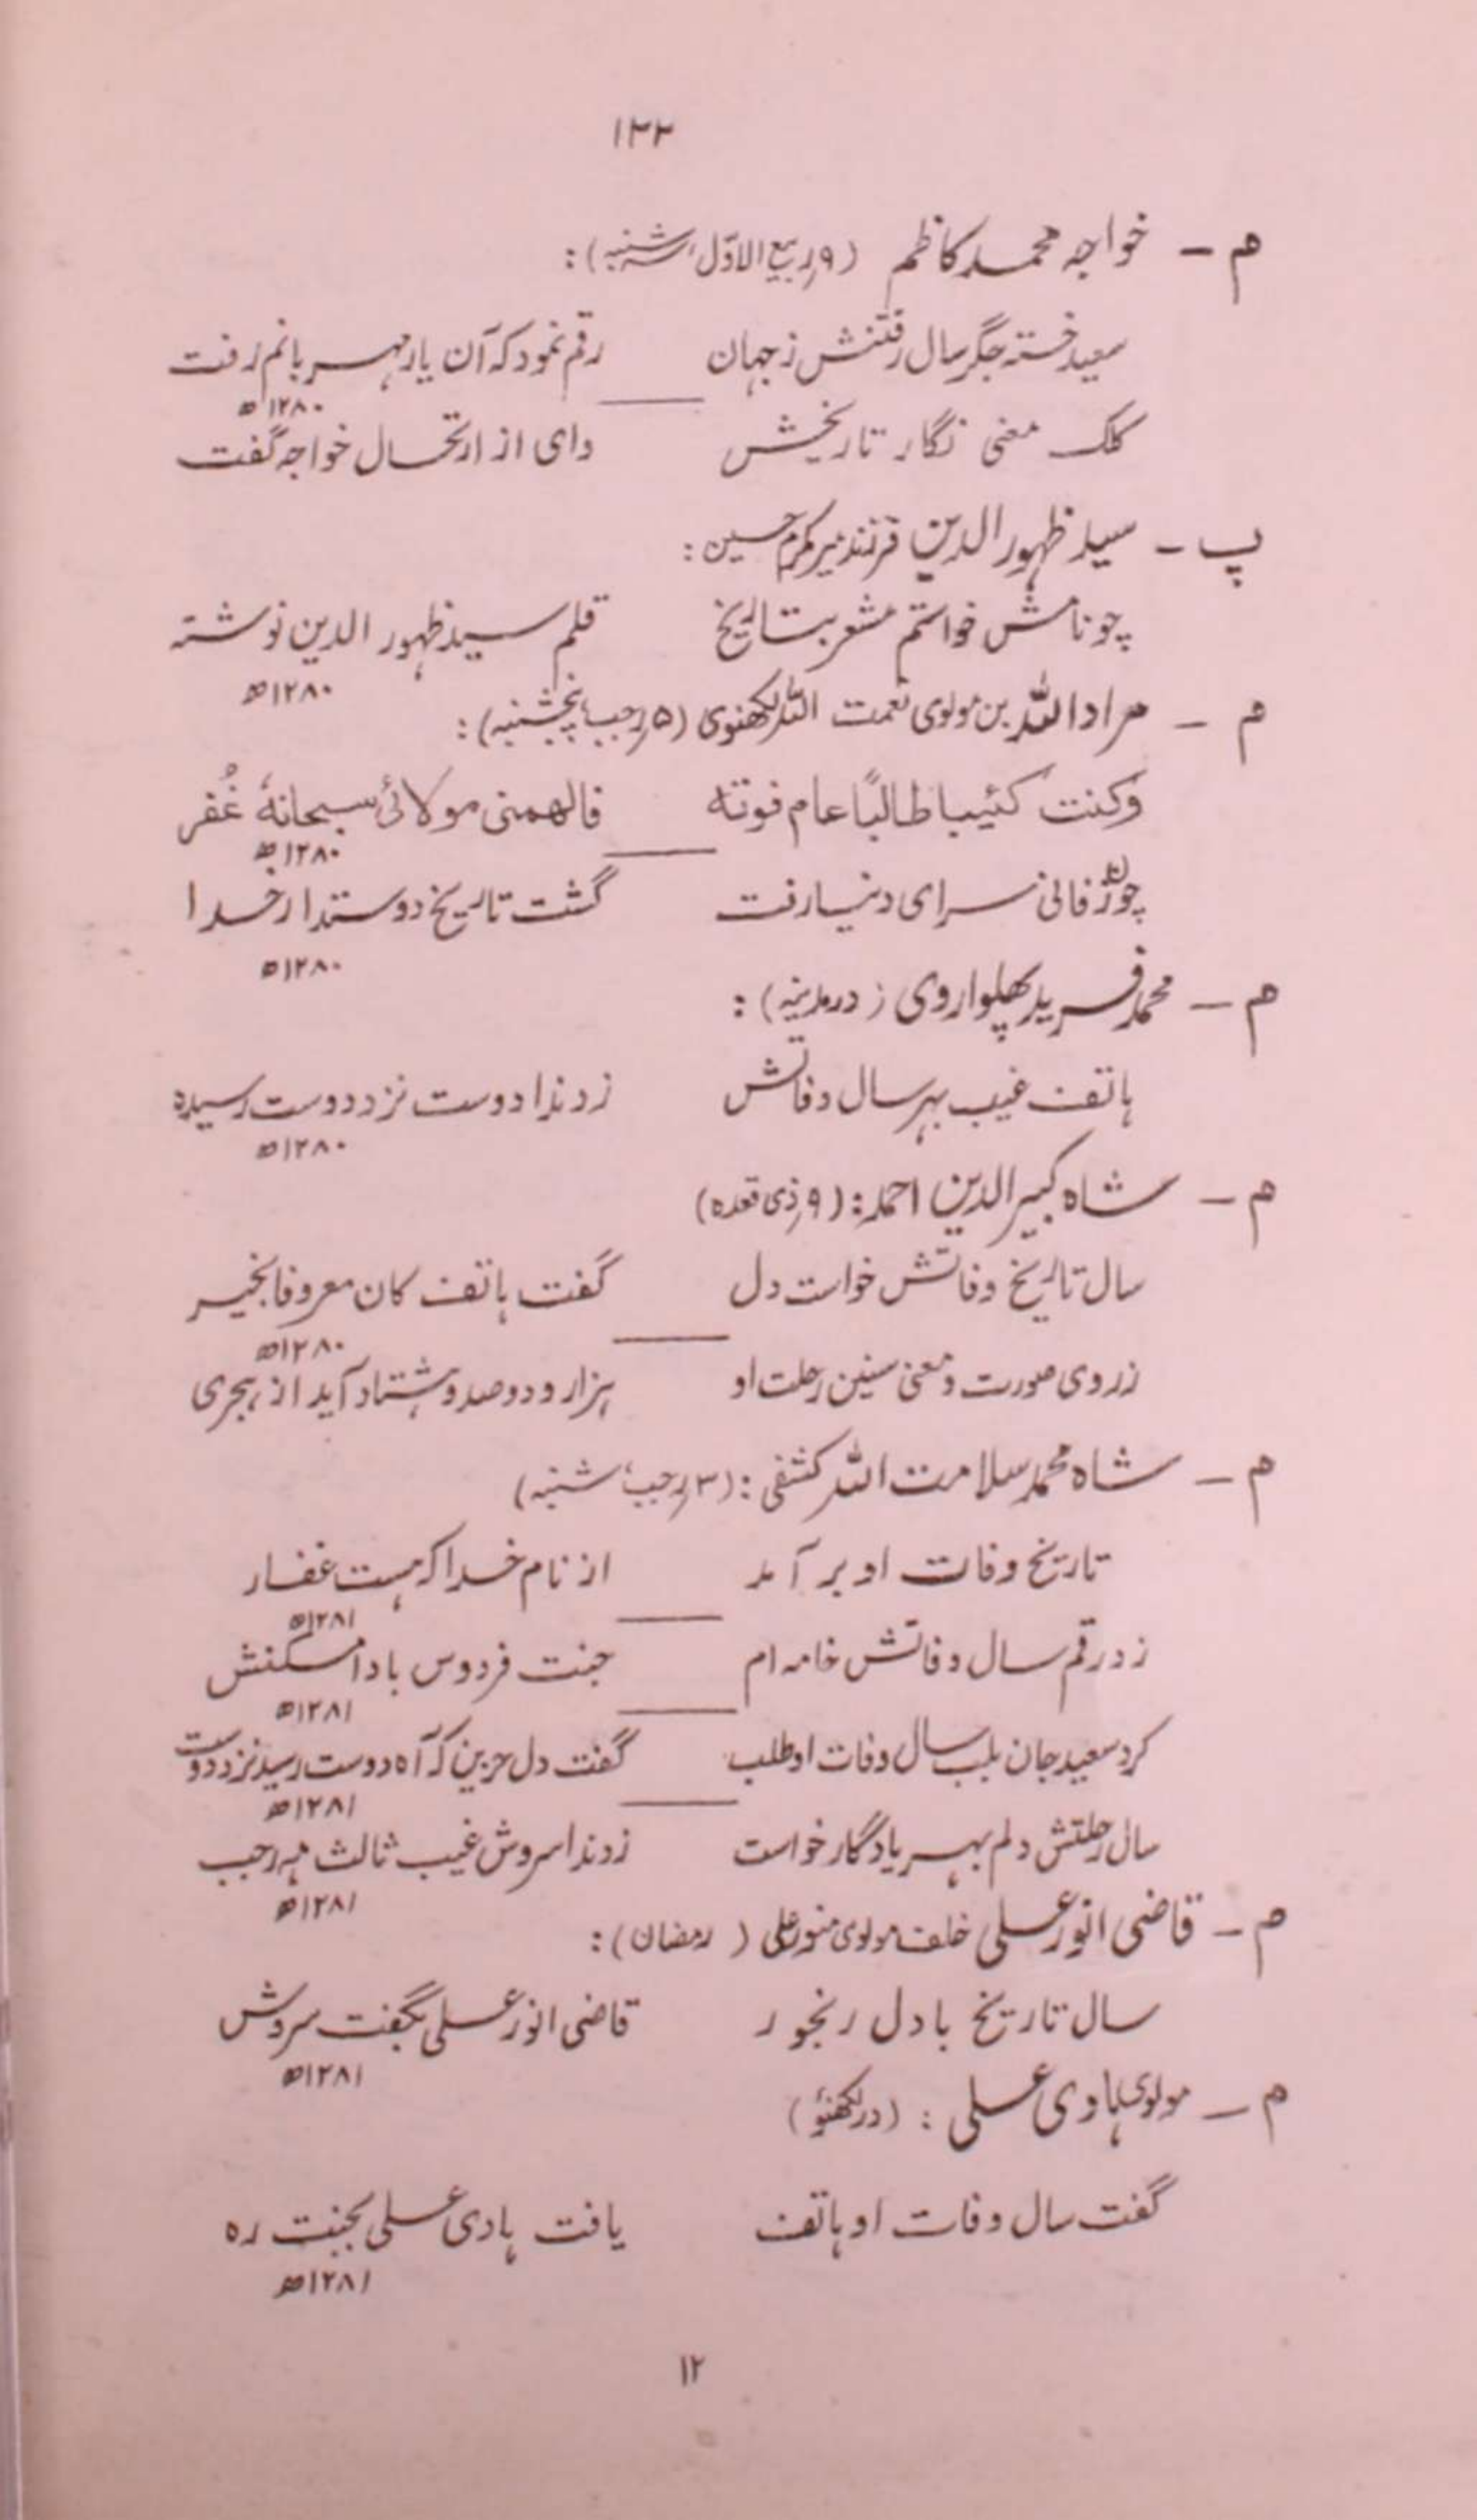 ۱۲۲
م – خواجہ محمد کاظم (۹ ربیع الاوّل، سہ شنبہ):
سعید خستہ جگر سال رفتنش ز جہان رقم نمود کہ آن یار مہربانم رفت
۱۲۸۰ھ
کلک معنی نگار تاریخش وای از ارتحال خواجہ گفت
پ – سید ظہور الدین فرزند میر مکرم حسین:
چو نامش خواستم مشعر بتاریخ قلم سید ظہور الدین نوشتہ
۱۲۸۰ھ
م – مراد اللہ بن مولوی نعمت اللہ لکھنوی (۵ رجب، پنجشنبہ):
وکنت کئیبا طالبًا عام فوتہ فالهمنی مولائی سبحانہٗ غُفر
۱۲۸۰ھ
چون ز فانی سرای دنیا رفت گشت تاریخ دوستدار خدا
۱۲۸۰ھ
م – محمد فرید پھلواروی (در مدینہ):
ہاتف غیب بہر سال وفاتش زد ندا دوست نزد دوست رسیدہ
۱۲۸۰ھ
م – شاہ کبیر الدین احمد: (۹ ذی قعدہ)
سال تاریخ وفاتش خواست دل گفت ہاتف کان معروفا بخیر
۱۲۸۰ھ
ز روی صورت و معنی سنین رحلت او ہزار و دو صد و ہشتاد آید از ہجری
م – شاہ محمد سلامت اللہ کشفی: (۳ رجب، شنبہ)
تاریخ وفات او بر آمد از نام خدا کہ ہست غفار
۱۲۸۱ھ
زد رقم سال وفاتش خامہ ام جنت فردوس بادا مسکنش
۱۲۸۱ھ
کرد سعید جان بلب سال وفات او طلب گفت دل حزین کہ آہ دوست رسید نزد دوست
۱۲۸۱ھ
سال رحلتش دلم بہر یادگار خواست زد ندا سروش غیب ثالث مہ رجب
۱۲۸۱ھ
م – قاضی انور علی خلف مولوی منور علی (رمضان):
سال تاریخ با دل رنجور قاضی انور علی بگفت سروش
۱۲۸۱ھ
م – مولوی ہادی علی: (در لکھنؤ)
گفت سال وفات او ہاتف یافت ہادی علی بجنت رہ
۱۲۸۱ھ
۱۲